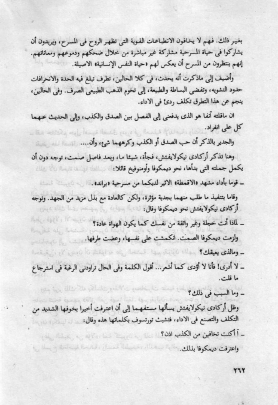 بغير ذلك. فهم لا يخافون الانطباعات القوية التى تظهر الروح فى المسرح، ويريدون أن
يشاركوا فى حياة المسرحية مشاركة غير مباشرة من خلال ضحكهم ودموعهم ومعاناتهم.
إنهم ينتظرون من المسرح أن يعكس لهم «حياة النفس الإنسانية» الأصيلة.
وأضيف إلى ماذكرت أنه يحدث، فى كلا الحالين، تطرف تبلغ فيه الحدة والانحرافات
حدود التشويه، وتفضى البساطة والطبيعة إلى نحو المذهب الطبيعى الصرف. وفى كلا الحالين،
ينجم عن هذا التطرف تكلف ردئ فى الاداء.
ان ماقلته آنفا هو الذى يدفعنى إلى الفصل بين الصدق والكذب، وإلى الحديث عنهما
كل على انفراد.
والجدير بالذكر أن حب الصدق أو الكذب وكرههما شىء، وأن....
وهنا تذكر أركادى نيكولايفتش، فجأة، شيئا ما، وبعد فاصل صمت، توجه دون أن
يكمل جملته التى بدأها، نحو ديمكوفا وأومنوفيخ قائلا:
ـ قوما بأداء مشهد «القمطة» الاثير لديكما من مسرحية «براند».
وقاما بتنفيذ ما طلب منهما بجدية مؤثرة، ولكن كالعادة مع بذل مزيد من الجهد. وتوجه
أركادى نيكولايفتش نحو ديمكوفا وقال:
ـ لماذا أنت خجلة وغير واثقة من نفسك كما يكون الهواة عادة؟
ولزمت ديمكوفا الصمت. انكمشت على نفسها، وغضت طرفها.
ـ ومالذى يعيقك؟
ـ لا أدرى! فأنا لا أؤدى كما أشعر... أقول الكلمة وفى الحال تراودنى الرغبة فى استرجاع
ما قلت.
ـ وما السبب فى ذلك؟
وظل أركادى نيكولايفتش يسألها مستفهما إلى أن اعترفت أخيرا بخوفها الشديد من
التكلف والتصنع فى الاداء، فتشبث تورتسوف بكلماتها هذه وقال:
ـ أكنت تخافين من الكذب اذن؟
واعترفت ديمكوفا بذلك.
٢٦٢